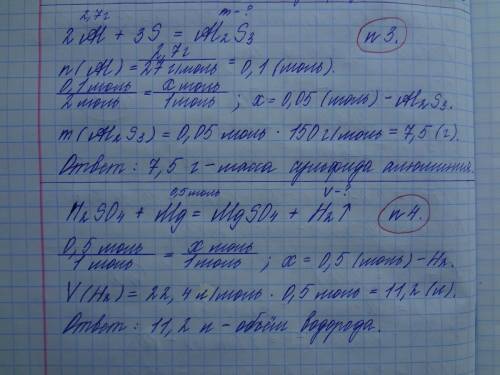 2,7г m-?
2Al + 3S = Al₂S₃ n3.
n(Al) = 2,7г / 27 г/моль = 0,1 (моль).
0,1 моль / 2 моль = x моль / 1 моль ; x = 0,05 (моль) - Al₂S₃.
m(Al₂S₃) = 0,05 моль · 150 г/моль = 7,5 (г).
Ответ: 7,5 г - масса сульфида алюминия.
0,5 моль V-?
H₂SO₄ + Mg = MgSO₄ + H₂↑ n4.
0,5 моль / 1 моль = x моль / 1 моль ; x = 0,5 (моль) - H₂.
V(H₂) = 22,4 л/моль · 0,5 моль = 11,2 (л).
Ответ: 11,2 л - объём водорода.